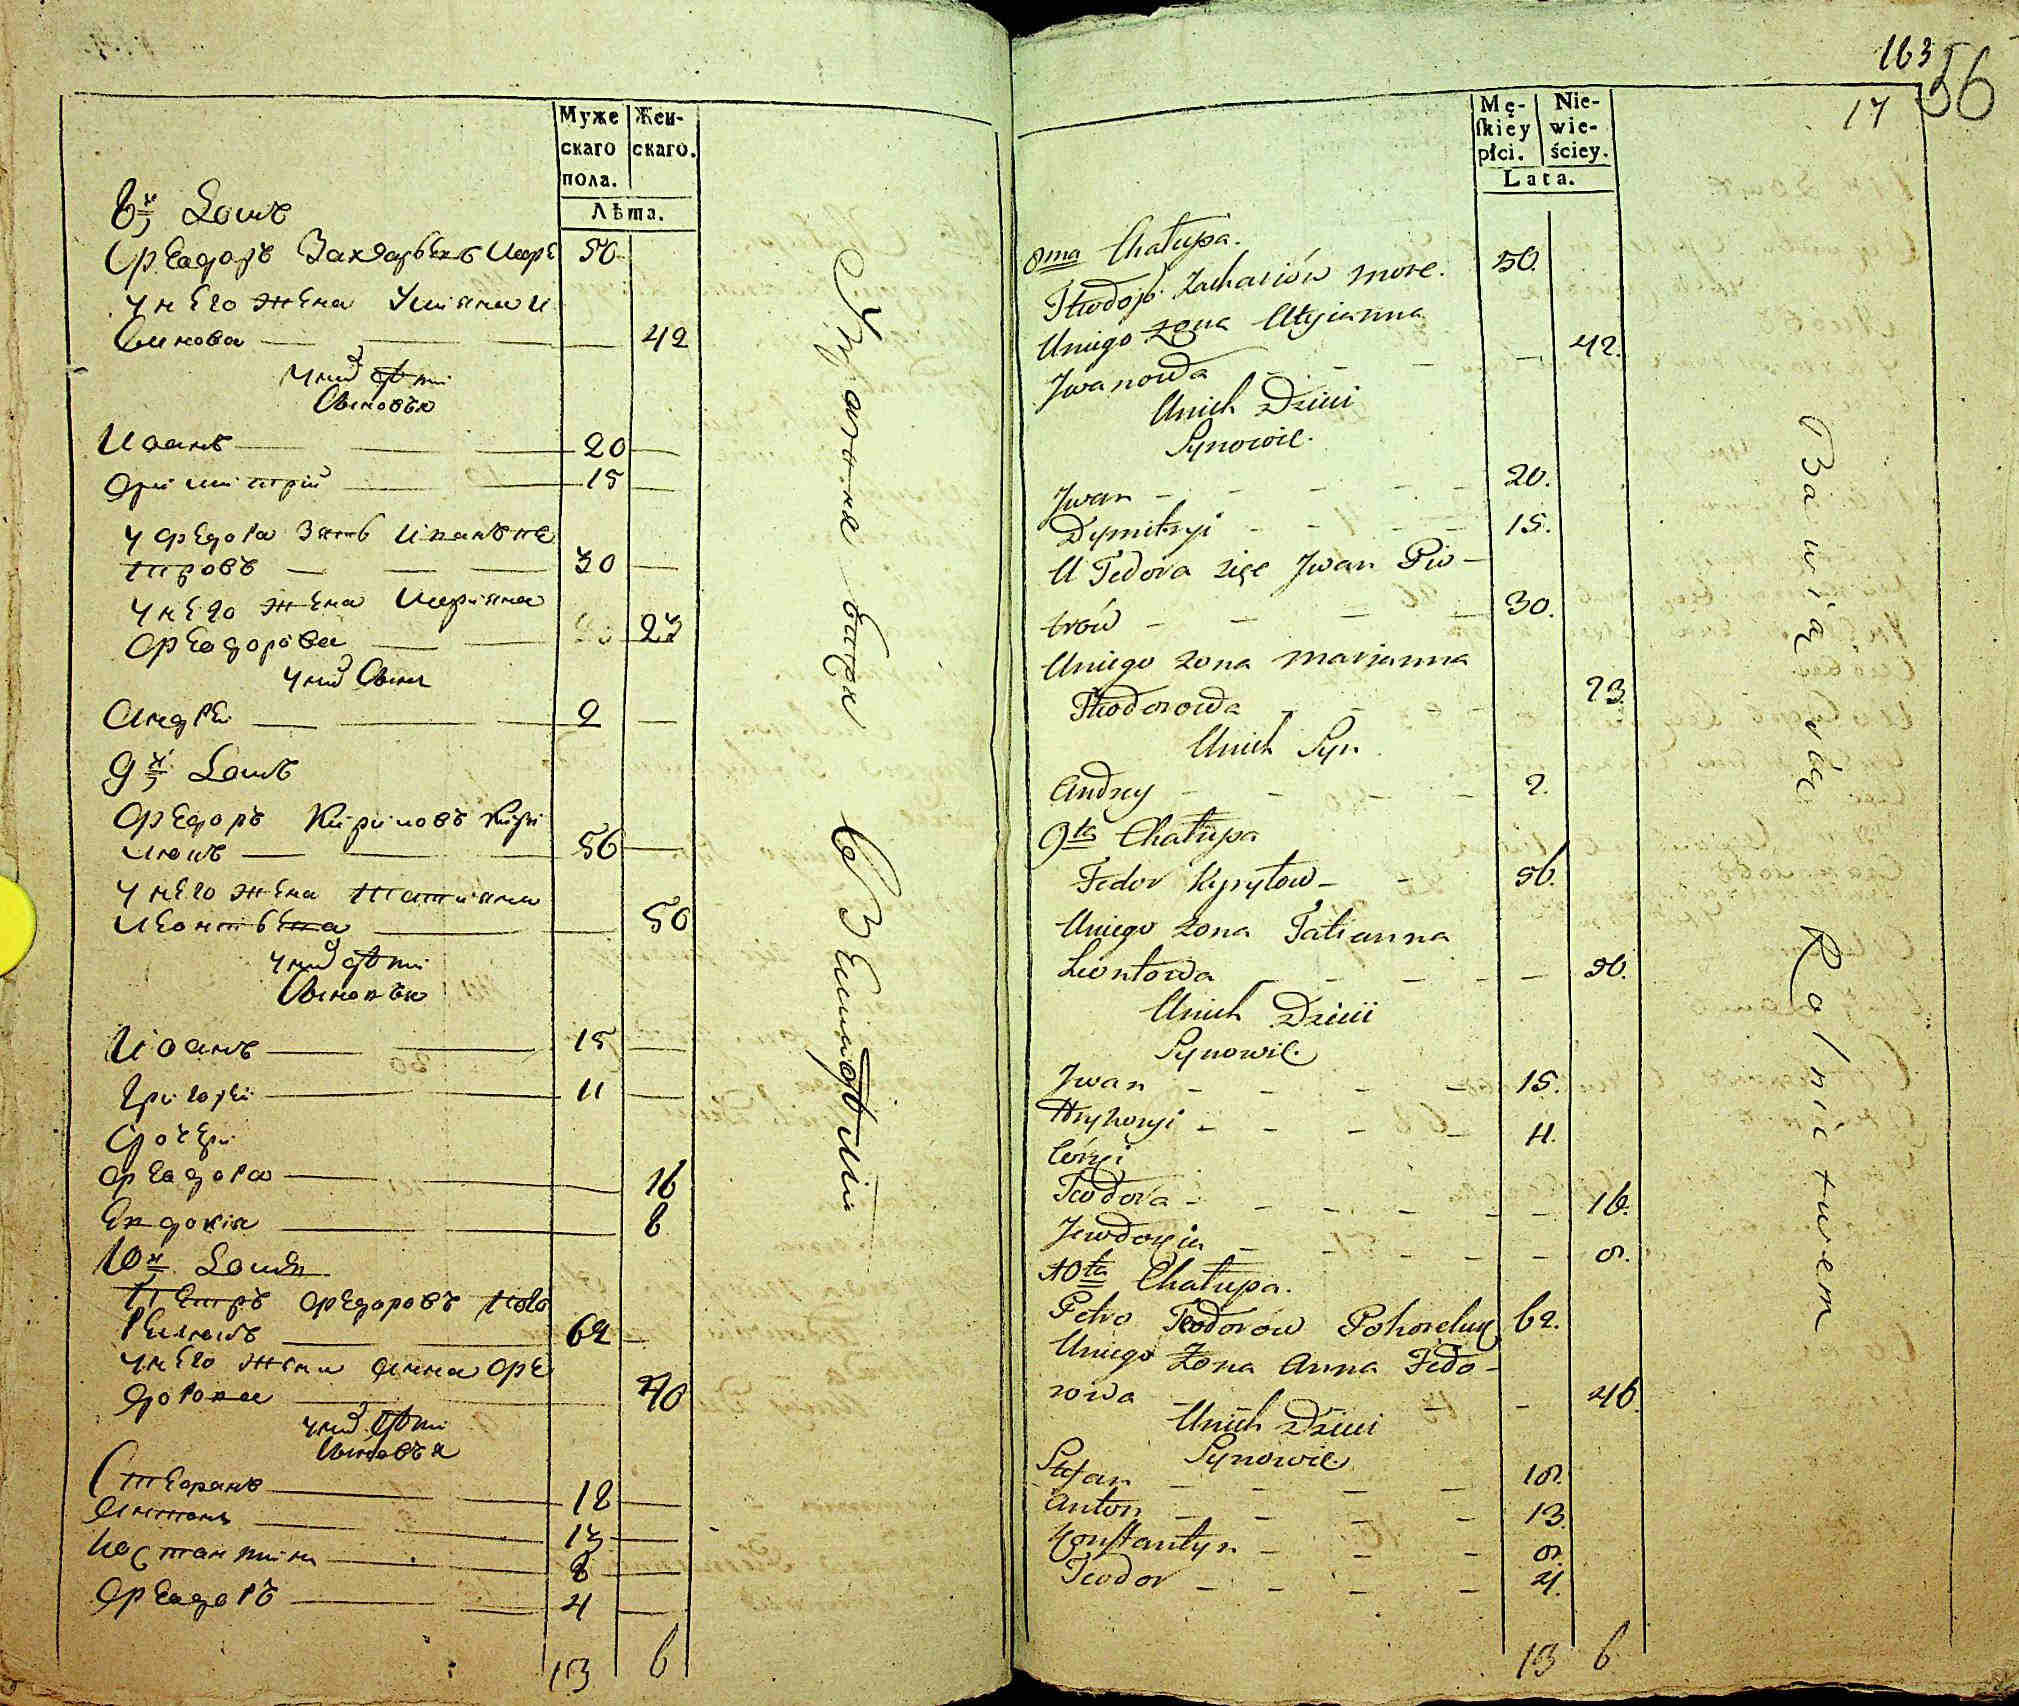 Муже
скаго
пола.
Жен-
скаго.
Лѣта.
8й Домъ
Феодоръ Захарьевъ Море
50
У него жена Уліяна И
ванова
42
У нихъ дѣти
Сыновья
Иоанъ 20
Димитрій 15
У Федора зять Иванъ Пе
тровъ 30
У него жена Маріяна
Феодорова 23
У нихъ Сынъ
Андрей 2
9й Домъ
Федоръ Кириловъ
56
У него жена Татіяна
Леонтьева 50
У нихъ дѣти
Сыновья
Иоанъ 15
Григорей 11
Дочери
Феодора 16
Евдокія 8
10й Домъ
Петръ Федоровъ Пого
релюкъ 62
У него жена Анна Фе
дорова 40
У нихъ дѣти
Сыновья
Стефанъ 18
Антонъ 13
Костантинъ 8
Феодоръ 4
13 6
163
56
17
Mę-
skiey
płci.
Nie-
wie-
ściey.
Lata.
8ma Chałupa.
Theodor Zachariów More. 50.
U niego żona Ulyianna
Jwanowa 42.
U nich Dzieci
Synowie.
Jwan 20.
Dymitryi 15.
U Fedora zięc Jwan Pio-
trów 30.
U niego żona Marjanna
Theodorowa 23
U nich Syn
Andrey 2.
9ta Chałupa
Fedor Kyryłow 56.
U niego żona Tatianna
Leontowa 50.
U nich Dzieci
Synowie.
Jwan 15.
Hryhoryi 11.
Córki
Teodora 16.
Jewdokia 8.
10ta Chałupa.
Petro Teodorów Pohoreluk 62.
U niego Żona Anna Fedo-
rowa 46.
U nich Dzieci
Synowie
Stefan 18.
Anton 13.
Konstantyn 8.
Teodor 4.
13 6
Bawią się Rolnictwem